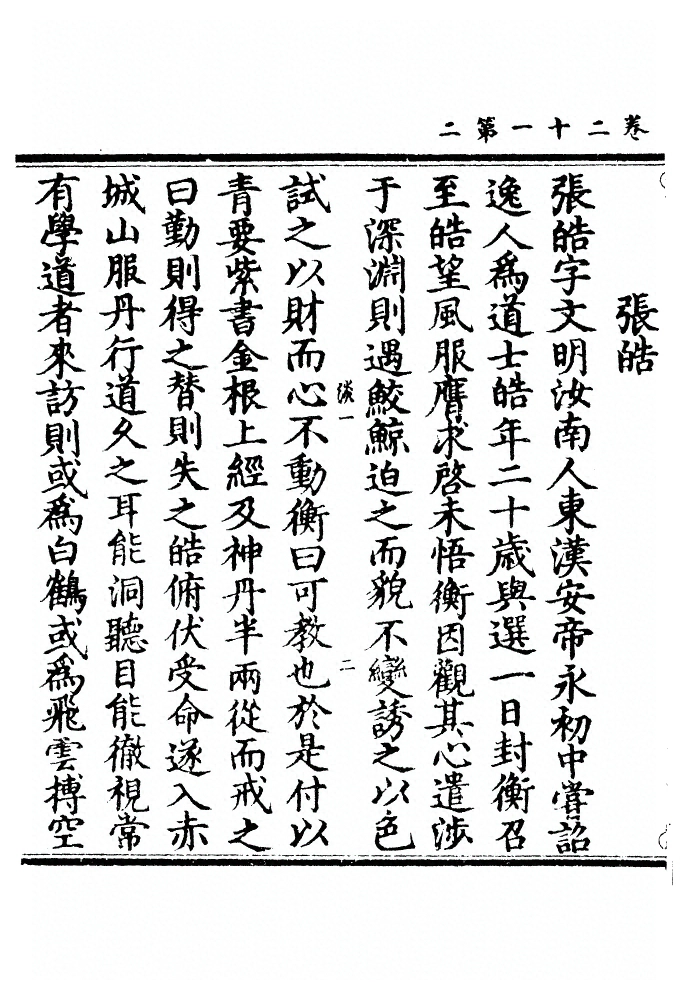 卷二十一第二
張皓
張皓字文明汝南人東漢安帝永初中嘗詔
逸人爲道士皓年二十歲與選一日封衡召
至皓望風服膺求啓未悟衡因觀其心遣涉
于深淵則遇鮫鯨迫之而貌不變誘之以色
試之以財而心不動衡曰可教也於是付以
談一
二
青要紫書金根上經及神丹半兩從而戒之
曰勤則得之替則失之皓俯伏受命遂入赤
城山服丹行道久之耳能洞聽目能徹視常
有學道者來訪則或爲白鶴或爲飛雲摶空